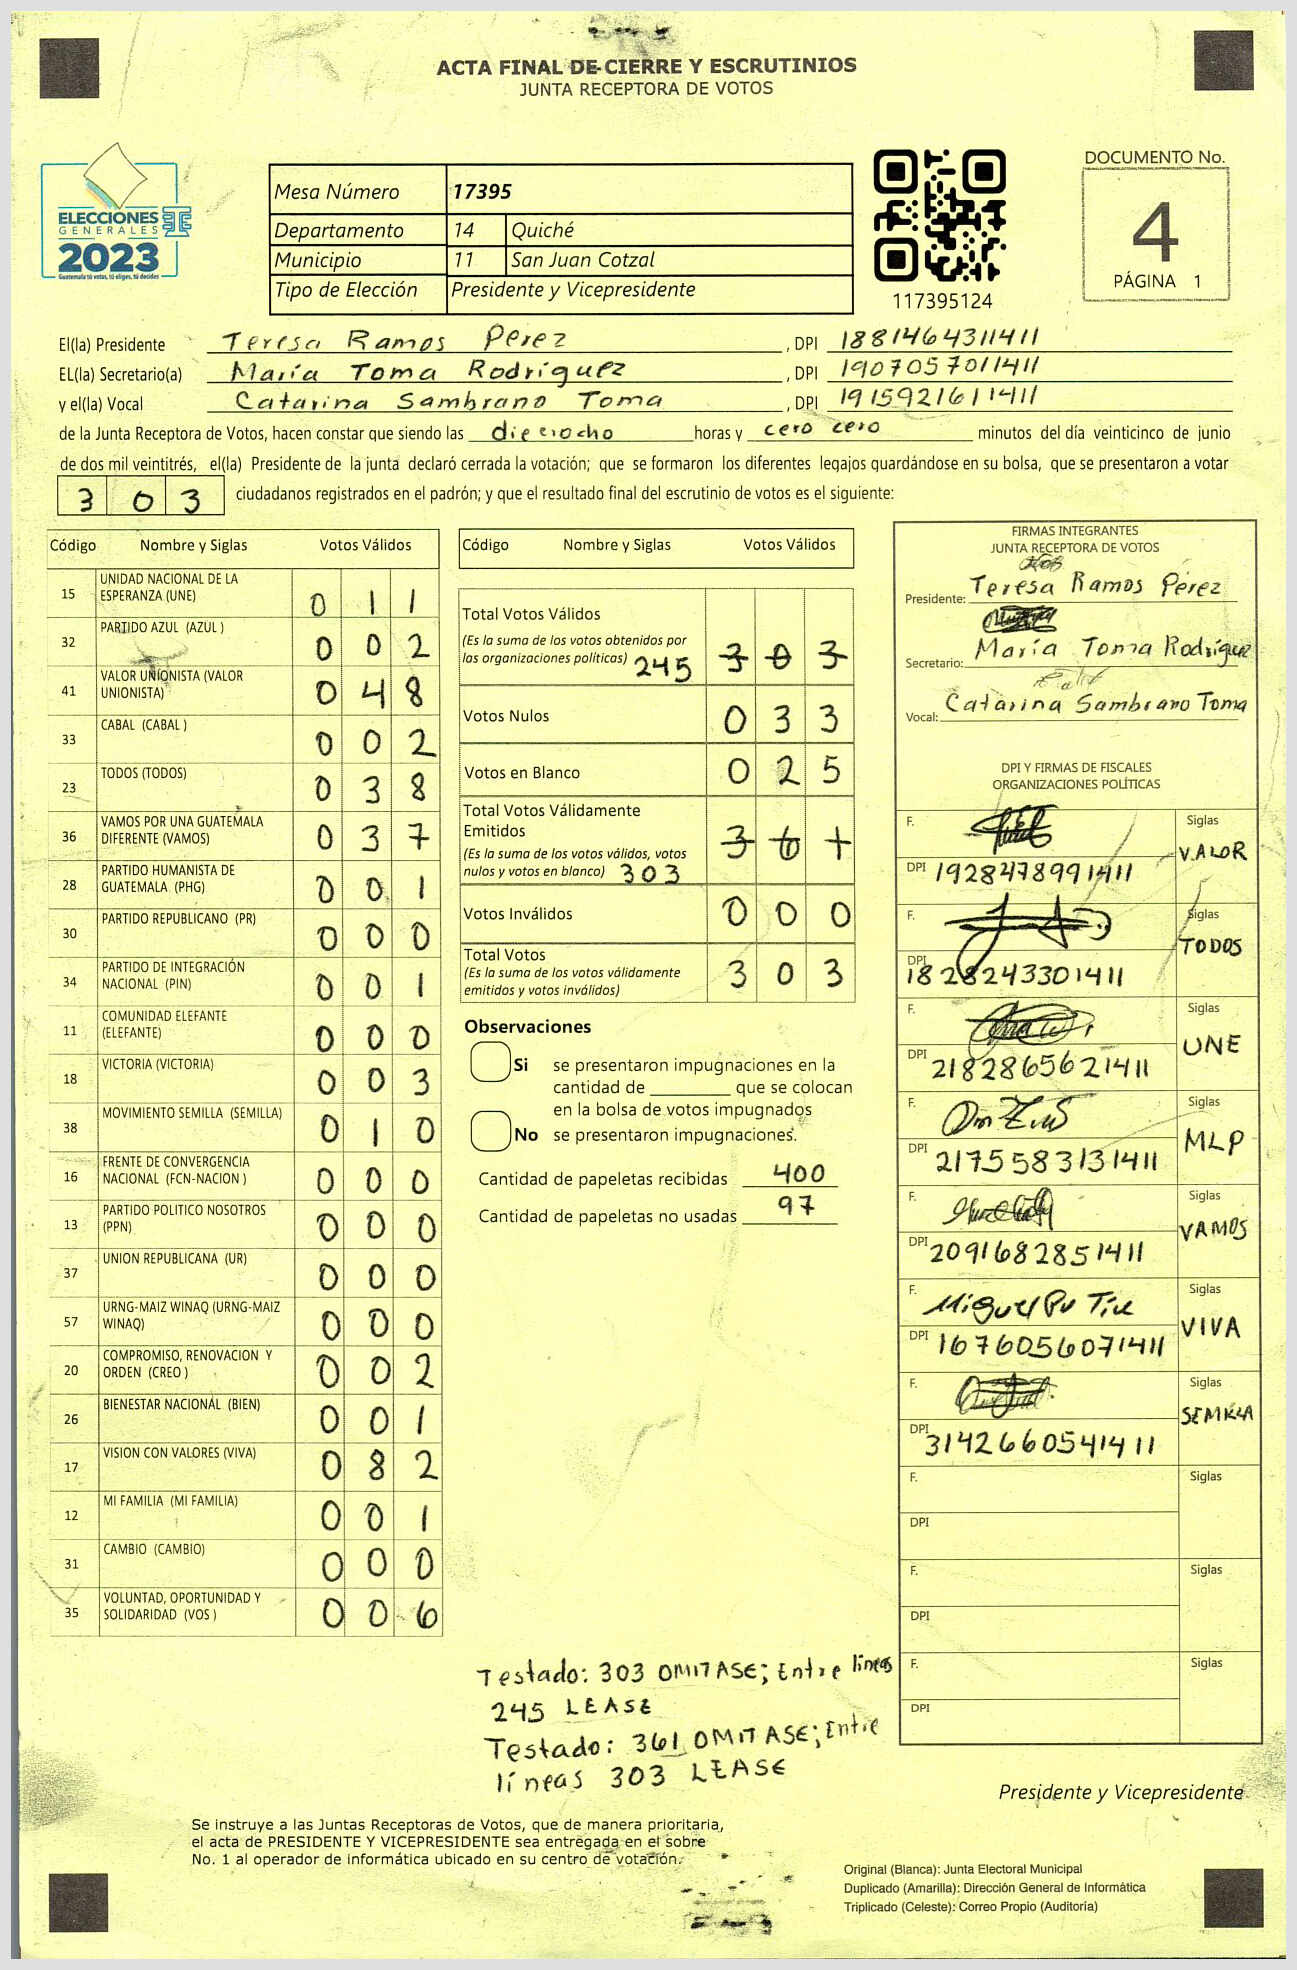 ACTA FINAL DE CIERRE Y ESCRUTINIOS
JUNTA RECEPTORA DE VOTOS
ELECCIONES
GENERALES
2023
Guatemala tú votas, tú eliges, tú decides
Mesa Número 17395
Departamento 14 Quiché
Municipio 11 San Juan Cotzal
Tipo de Elección Presidente y Vicepresidente
117395124
DOCUMENTO No.
4
PÁGINA 1
El(la) Presidente Teresa Ramos Pérez , DPI 1881464311411
EL(la) Secretario(a) María Toma Rodríguez , DPI 1907057011411
y el(la) Vocal Catarina Sambrano Toma , DPI 1915921611411
de la Junta Receptora de Votos, hacen constar que siendo las dieciocho horas y cero cero minutos del día veinticinco de junio
de dos mil veintitrés, el(la) Presidente de la junta declaró cerrada la votación; que se formaron los diferentes legajos guardándose en su bolsa, que se presentaron a votar
303 ciudadanos registrados en el padrón; y que el resultado final del escrutinio de votos es el siguiente:
Código Nombre y Siglas Votos Válidos
15 UNIDAD NACIONAL DE LA ESPERANZA (UNE) 011
32 PARTIDO AZUL (AZUL ) 002
41 VALOR UNIONISTA (VALOR UNIONISTA) 048
33 CABAL (CABAL ) 002
23 TODOS (TODOS) 038
36 VAMOS POR UNA GUATEMALA DIFERENTE (VAMOS) 037
28 PARTIDO HUMANISTA DE GUATEMALA (PHG) 001
30 PARTIDO REPUBLICANO (PR) 000
34 PARTIDO DE INTEGRACIÓN NACIONAL (PIN) 001
11 COMUNIDAD ELEFANTE (ELEFANTE) 000
18 VICTORIA (VICTORIA) 003
38 MOVIMIENTO SEMILLA (SEMILLA) 010
16 FRENTE DE CONVERGENCIA NACIONAL (FCN-NACION ) 000
13 PARTIDO POLITICO NOSOTROS (PPN) 000
37 UNION REPUBLICANA (UR) 000
57 URNG-MAIZ WINAQ (URNG-MAIZ WINAQ) 000
20 COMPROMISO, RENOVACION Y ORDEN (CREO ) 002
26 BIENESTAR NACIONAL (BIEN) 001
17 VISION CON VALORES (VIVA) 082
12 MI FAMILIA (MI FAMILIA) 001
31 CAMBIO (CAMBIO) 000
35 VOLUNTAD, OPORTUNIDAD Y SOLIDARIDAD (VOS ) 006
Código Nombre y Siglas Votos Válidos
Total Votos Válidos
(Es la suma de los votos obtenidos por
las organizaciones políticas) 245 303
Votos Nulos 033
Votos en Blanco 025
Total Votos Válidamente
Emitidos 361
(Es la suma de los votos válidos, votos
nulos y votos en blanco) 303
Votos Inválidos 000
Total Votos 303
(Es la suma de los votos válidamente
emitidos y votos inválidos)
Observaciones
Si se presentaron impugnaciones en la
cantidad de ________ que se colocan
en la bolsa de votos impugnados
No se presentaron impugnaciones.
Cantidad de papeletas recibidas 400
Cantidad de papeletas no usadas 97
Testado: 303 OMITASE; Entre líneas
245 LEASE
Testado: 361 OMITASE; Entre
líneas 303 LEASE
FIRMAS INTEGRANTES
JUNTA RECEPTORA DE VOTOS
Presidente: Teresa Ramos Pérez
Secretario: María Toma Rodríguez
Vocal: Catarina Sambrano Toma
DPI Y FIRMAS DE FISCALES
ORGANIZACIONES POLÍTICAS
F. Siglas
DPI 1928478991411 VALOR
F. Siglas
DPI 1828243301411 TODOS
F. Siglas
DPI 2182865621411 UNE
F. Siglas
DPI 2175583131411 MLP
F. Siglas
DPI 2091682851411 VAMOS
F. Miguel Pu Tiu Siglas
DPI 1676056071411 VIVA
F. Siglas
DPI 3142660541411 SEMILLA
F. Siglas
DPI
F. Siglas
DPI
F. Siglas
DPI
Presidente y Vicepresidente
Se instruye a las Juntas Receptoras de Votos, que de manera prioritaria,
el acta de PRESIDENTE Y VICEPRESIDENTE sea entregada en el sobre
No. 1 al operador de informática ubicado en su centro de votación.
Original (Blanca): Junta Electoral Municipal
Duplicado (Amarilla): Dirección General de Informática
Triplicado (Celeste): Correo Propio (Auditoría)